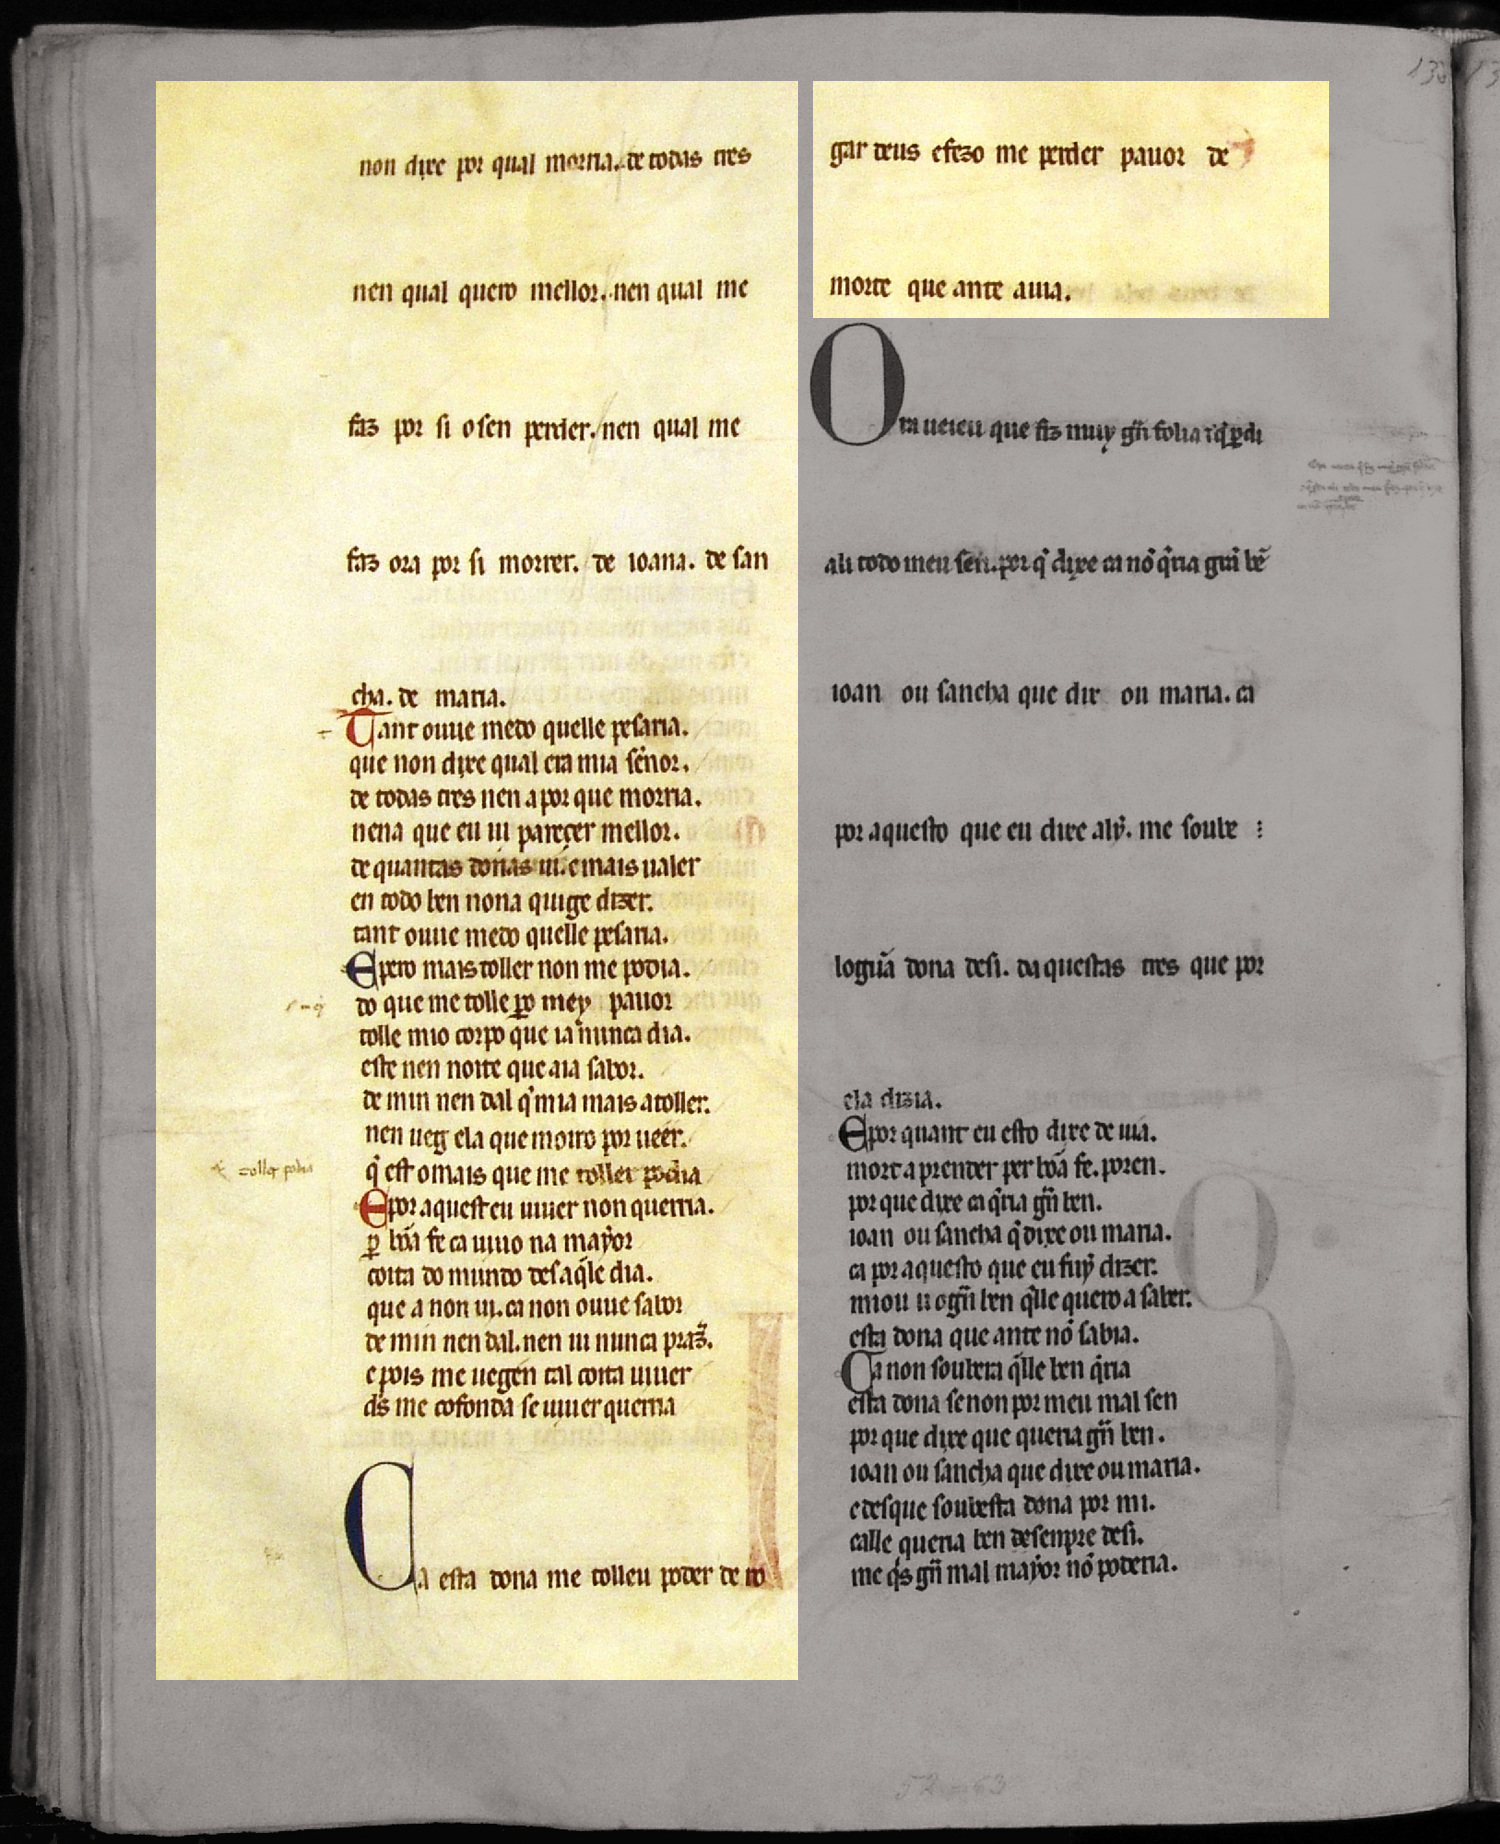 non dixe por qual morria. de todas tres
nen qual quero mellor. nen qual me
faz por si o sen perder. nen qual me
faz ora por si morrer. de ioana. de san
cha. de maria.
Tant ouue medo quelle pesaria.
que non dixe qual era mia sẽnor.
de todas tres nen a por que morria.
nena que eu ui pareçer mellor.
de quantas donas ui. e mais ualer
en todo ben nona quige dizer.
tant ouue medo quelle pesaria.
Epero mais toller non me podia.
do que me tolle ꝑo mey pauor
tolle mio corpo que ia nunca dia.
este nen noite que aia sabor.
de min nen dal q̃ mia mais a toller.
nen ueg ela que moiro por ueer.
q̃ est o mais que me toller podia
E por aquest eu uiuer non querria.
ꝑ bõa fe ca uiuo na mayor
coita do mundo des aq̃le dia.
que a non ui. ca non ouue sabor
de min nen dal. nen ui nunca praz̃.
e pois me uegen tal coita uiuer
ds̃ me cofonda se uiuer querria
Ca esta dona me tolleu poder de ro
gar deus e fezo me perder pauor de
morte que ante auia.
Ora ueieu que fiz muy grã folia τ q̃ ꝑdi
ali todo meu sen. por q̃ dixe ca nõ q̃ria grã bẽ
ioan ou sancha que dix ou maria. ca
por aquesto que eu dixe aly. me soube
logũa dona desi. daquestas tres que por
ela dizia.
E por quant eu esto dixe deuia.
mort a prender per bõa fe. poren.
por que dixe ca q̃ria grã ben.
ioan ou sancha q̃ dixe ou maria.
ca por aquesto que eu fuy dizer.
miou u ogrã ben q̃lle quero a saber.
esta dona que ante nõ sabia.
Ca non soubera q̃lle ben q̃ria
esta dona senon por meu mal sen
por que dixe que queria grã ben.
ioan ou sancha que dixe ou maria.
e desque soubesta dona por mi.
calle queria ben desenpre desi.
me q̃s grã mal mayor nõ poderia.